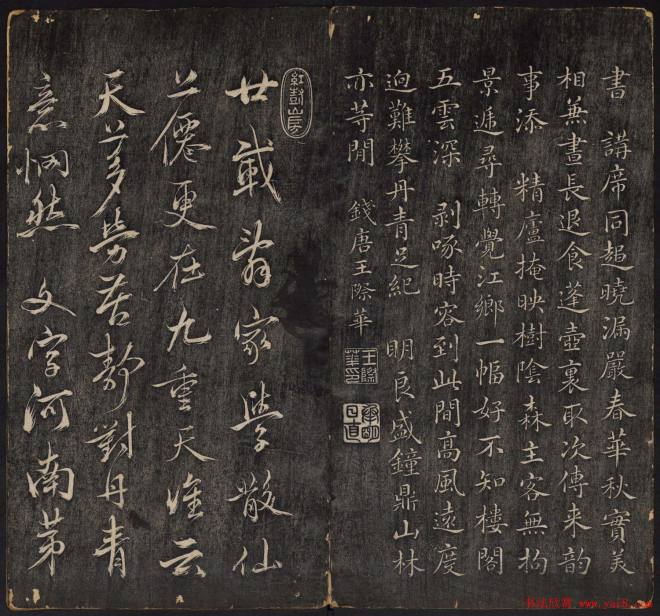 書 講席同趨曉漏嚴春華秋實美
相兼晝長退食蓬壺裏取次傳来韵
事添 精廬掩映樹陰森主客無拘
景遞尋轉覺江鄉一幅好不知樓閣
五雲深 剥啄時容到此間高風遠度
迥難攀丹青足紀 明良盛鐘鼎山林
亦等閒 錢唐王際華
王際華印
廿載家學散仙
僊更在九重天誰云
天勞若靜對丹青
意惘然 文字河南茅
书法欣赏 www.yac8.com